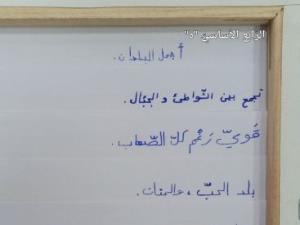 الرابع الأساسي "د"
أجمل البلدان.
تجمع بين الشواطئ والجبال.
قويّ رغم كلّ الصّعاب.
بلد الحبّ، والحنان.